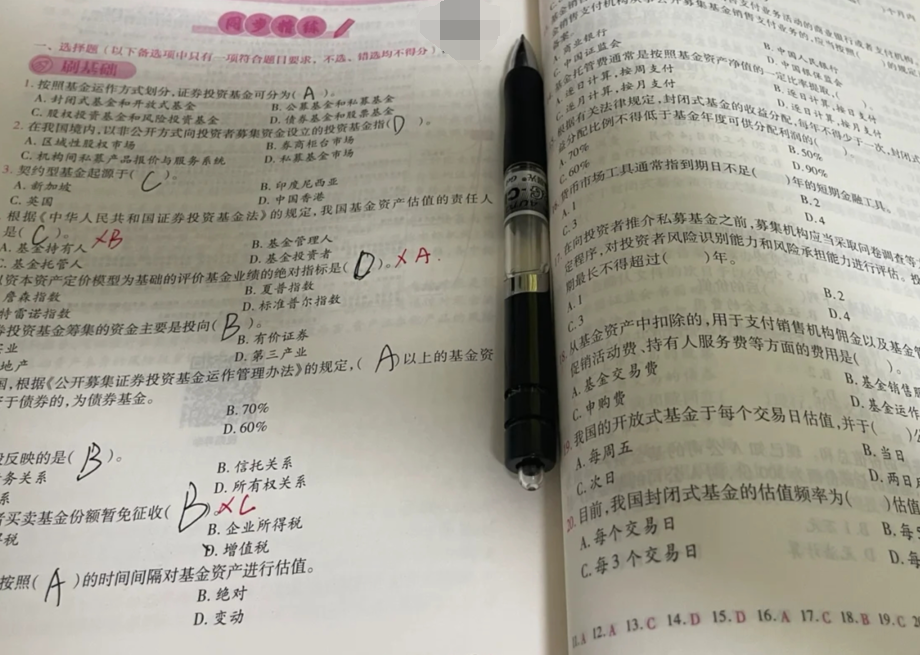 同步精练
一、选择题(以下备选项中只有一项符合题目要求,不选、错选均不得分)
刷基础
1. 按照基金运作方式划分,证券投资基金可分为( A )。
A. 封闭式基金和开放式基金 B. 公募基金和私募基金
C. 股权投资基金和风险投资基金 D. 债券基金和股票基金
2. 在我国境内,以非公开方式向投资者募集资金设立的投资基金指( D )。
A. 区域性股权市场 B. 券商柜台市场
C. 机构间私募产品报价与服务系统 D. 私募基金市场
3. 契约型基金起源于( C )。
A. 新加坡 B. 印度尼西亚
C. 英国 D. 中国香港
根据《中华人民共和国证券投资基金法》的规定,我国基金资产估值的责任人
是( C )。 ×B
A. 基金持有人 B. 基金管理人
C. 基金托管人 D. 基金投资者
以资本资产定价模型为基础的评价基金业绩的绝对指标是( D )。×A
詹森指数 B. 夏普指数
特雷诺指数 D. 标准普尔指数
券投资基金筹集的资金主要是投向( B )。
业 B. 有价证券
地产 D. 第三产业
国,根据《公开募集证券投资基金运作管理办法》的规定,( A )以上的基金资
于债券的,为债券基金。
B. 70%
D. 60%
反映的是( B )。
务关系 B. 信托关系
系 D. 所有权关系
者买卖基金份额暂免征收( B )。×C
税 B. 企业所得税
D. 增值税
按照( A )的时间间隔对基金资产进行估值。
B. 绝对
D. 变动
A. 商业银行 B. 中国人民银行
C. 中国证监会 D. 中国银保监会
基金托管费通常是按照基金资产净值的一定比率提取,( )。
A. 逐日计算,按周支付 B. 逐日计算,按日支付
C. 逐月计算,按月支付 D. 逐日计算,按月支付
根据有关法律规定,封闭式基金的收益分配,每年不得少于一次,封闭式
益分配比例不得低于基金年度可供分配利润的( )。
A. 70% B. 50%
C. 60% D. 90%
16. 货币市场工具通常指到期日不足( )年的短期金融工具。
A. 1 B. 2
C. 3 D. 4
17. 在向投资者推介私募基金之前,募集机构应当采取问卷调查等
定程序,对投资者风险识别能力和风险承担能力进行评估。投
期最长不得超过( )年。
A. 1 B. 2
C. 3 D. 4
18. 从基金资产中扣除的,用于支付销售机构佣金以及基金管
促销活动费、持有人服务费等方面的费用是( )。
A. 基金交易费 B. 基金销售服
C. 申购费 D. 基金运作
19. 我国的开放式基金于每个交易日估值,并于( )公
A. 每周五 B. 当日
C. 次日 D. 两日
20. 目前,我国封闭式基金的估值频率为( )估值
A. 每个交易日 B. 每
C. 每3个交易日 D. 每
11. A 12. A 13. C 14. D 15. D 16. A 17. C 18. B 19. C